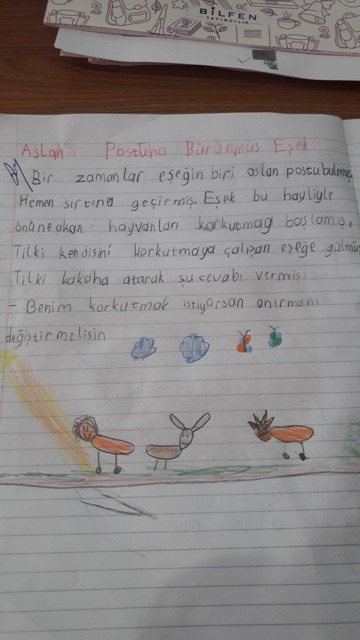 BİLFEN
YAYINCILIK
Aslan Postuna Bürünmüş Eşek
Bir zamanlar eşeğin biri aslan postu bulmuş
Hemen sırtına geçirmiş. Eşek bu hayliyle
önüne akan hayvanları korkutmag başlamış.
Tilki kendisini korkutmaya çalışan eşeğe gülmüş
Tilki kakaha atarak şu cevabı vermiş:
- Benim korkutmak istiyorsan anırmanı
değiştirmelisin